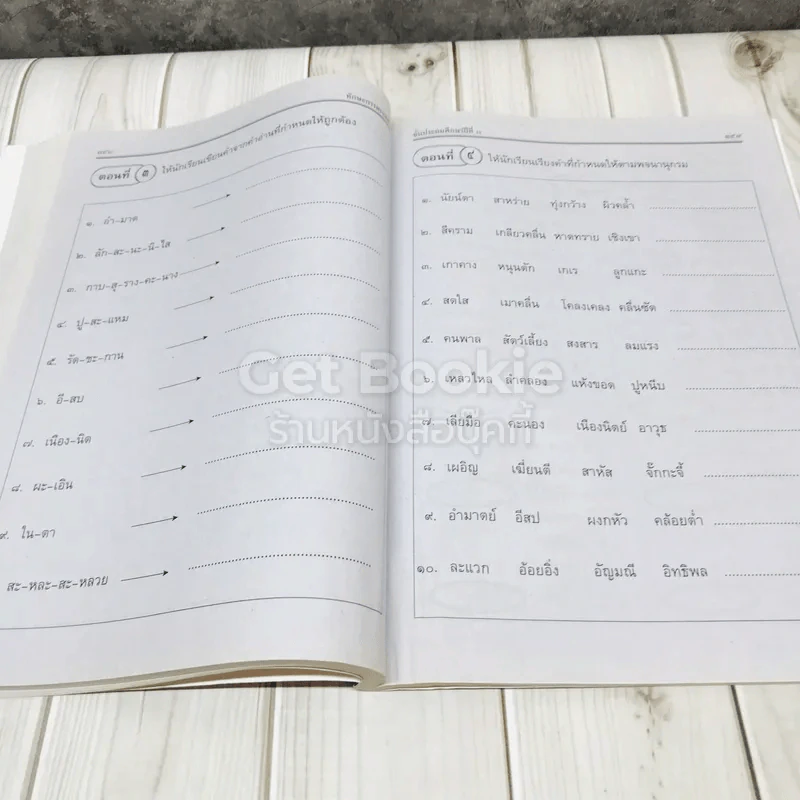 ทักษะภาษา
ตอนที่ ๓ ให้นักเรียนเขียนคำจากคำอ่านที่กำหนดให้ถูกต้อง
๑. อำ-มาด
๒. ลัก-สะ-นะ-นิ-ไส
๓. กาบ-สุ-ราง-คะ-นาง
๔. ปู-สะ-แหม
๕. รัด-ชะ-กาน
๖. อี-สบ
๗. เนือง-นิด
๘. ผะ-เอิน
๙. ใน-ตา
สะ-หละ-สะ-หลวย
ชั้นประถมศึกษาปีที่ ๓
ตอนที่ ๔ ให้นักเรียนเรียงคำที่กำหนดให้ตามพจนานุกรม
๑. นัยน์ตา สาหร่าย ทุ่งกว้าง ผิวคล้ำ
๒. สีคราม เกลียวคลื่น หาดทราย เชิงเขา
๓. เกาคาง หนุนตัก เกเร ลูกแกะ
๔. สดใส เมาคลื่น โคลงเคลง คลื่นซัด
๕. คนพาล สัตว์เลี้ยง สงสาร ลมแรง
๖. เหลวไหล ลำคลอง แห้งขอด ปูหนีบ
๗. เลียมือ คะนอง เนืองนิตย์ อาวุธ
๘. เผอิญ เฆี่ยนตี สาหัส จั๊กกะจี้
๙. อำมาตย์ อีสป ผงกหัว คล้อยต่ำ
๑๐. ละแวก อ้อยอิ่ง อัญมณี อิทธิพล
Get Bookie
ร้านหนังสือบุ๊คกี้